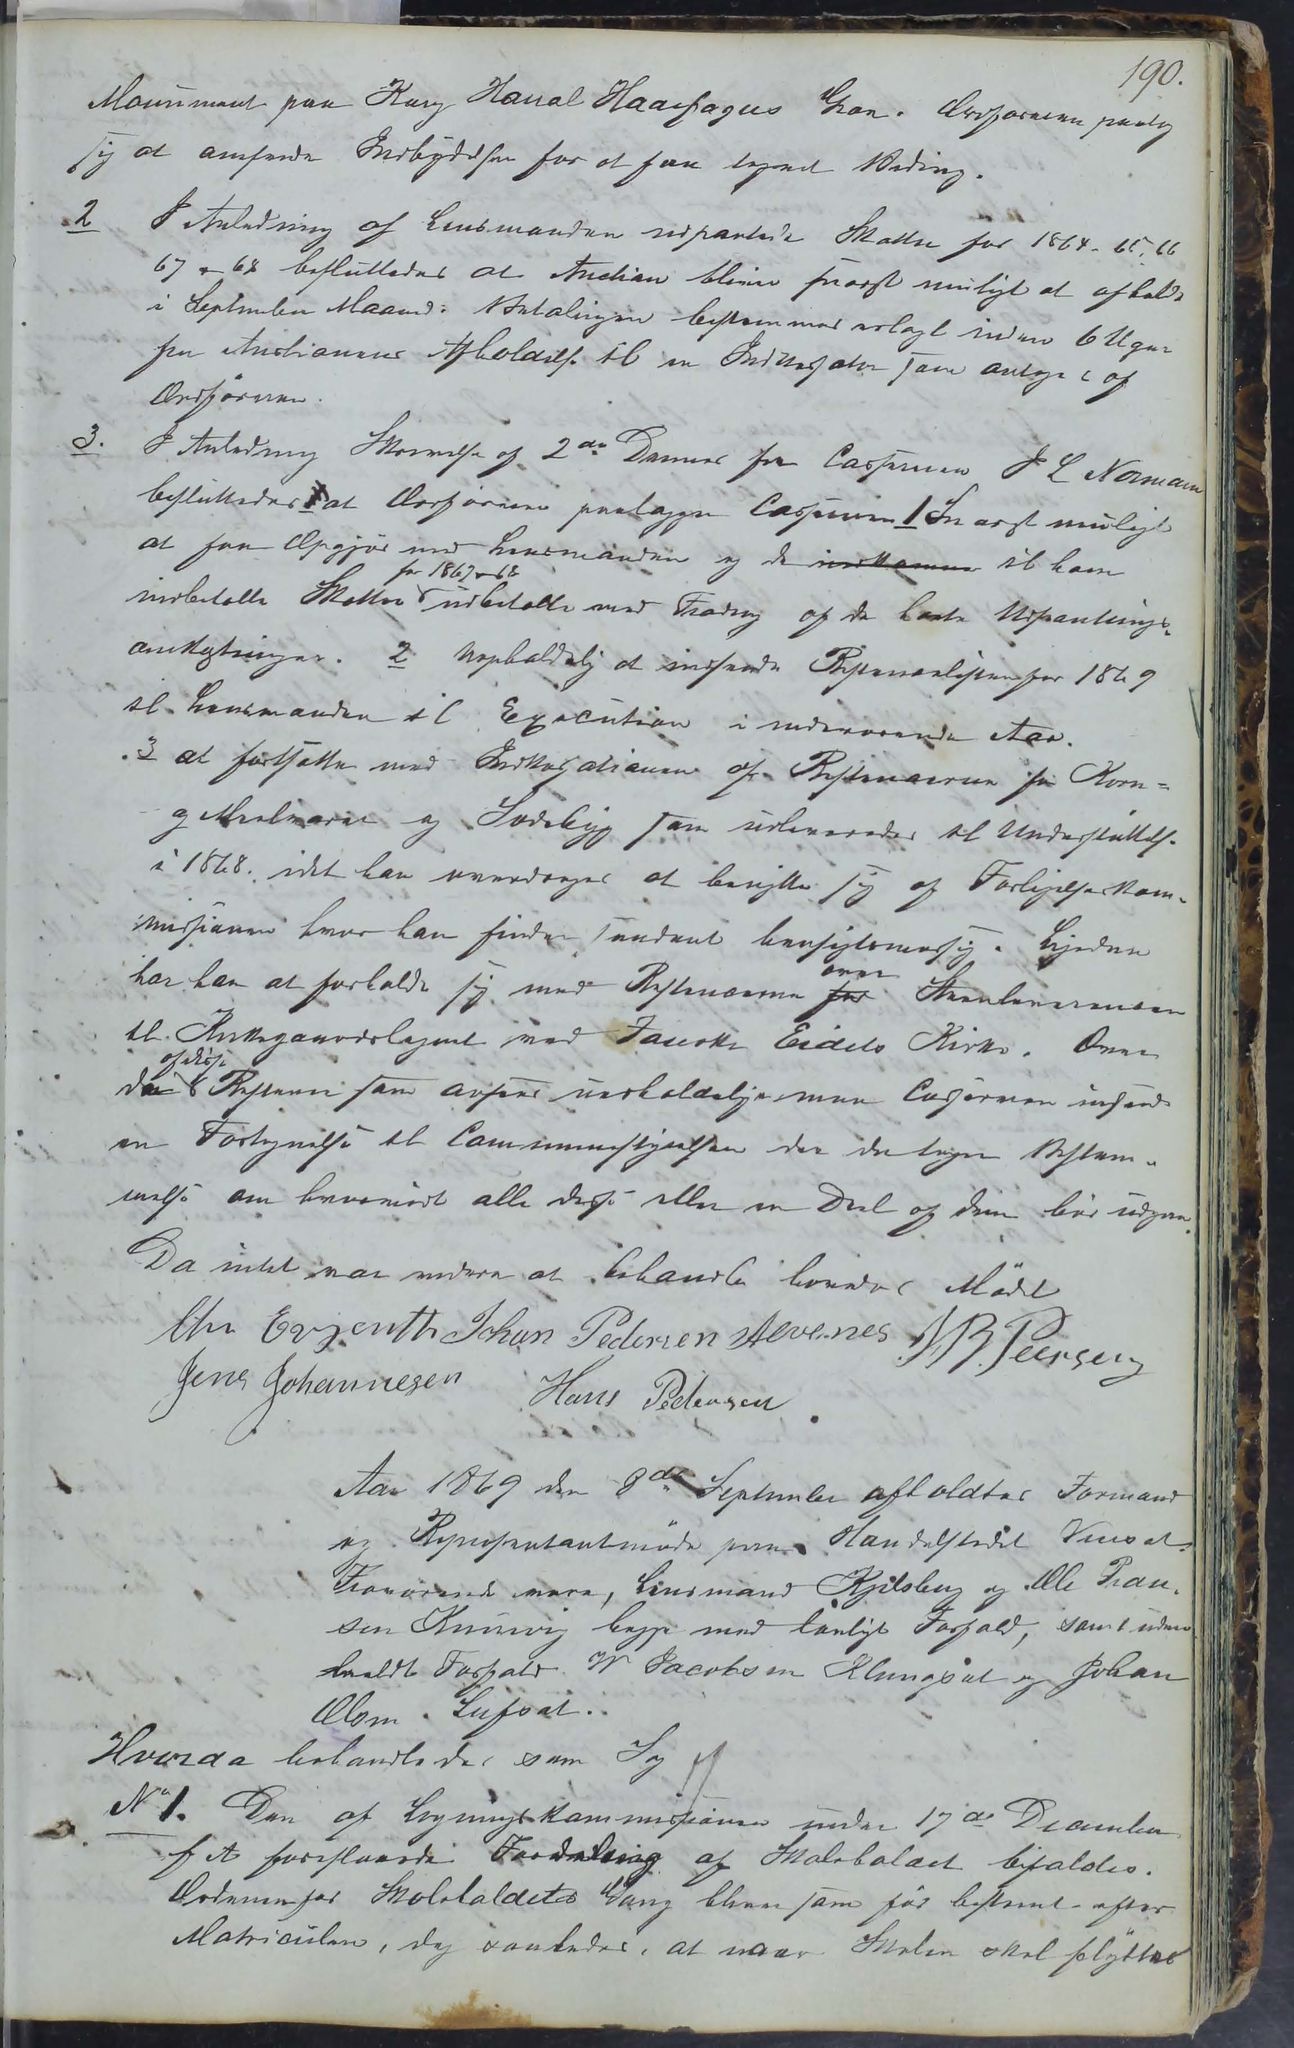 190.
Monument paa Kong Harral Haarfagres Grav. Ordføreren paatog
sig at omsende Indbydelsen for at faa tegnet Bidrag.
2 I Anledning af Lensmanden udpantede Skatter for 1864-65, 66
67 & 68 besluttedes at Auction bliver snarest muligt at afholde
i September Maaned: Betalingen bestemmes erlagt inden 6 Uger
fra Auctionens Afholdelse til en Indkassator som antages af
Ordføreren.
3. I Anledning Skrivelse af 2den Dennes fra Casserer J L Normann
besluttedes at Ordføreren paalægger Casserer 1 Snarest muligt
at faa Opgjør med Lensmanden og de indkomne til ham
indbetalte Skatter for 1867 & 68 udbetalte med Fradrag af de Udpantnings-
omkostninger. 2 Uopholdelig at indsende Restanselisten for 1869
til Lensmanden til Execution i indeværende Aar.
3 at fortsætte med Indkassationen af Restancerne for Korn-
og Meelvarer og Sædebyg som udleveredes til Understøttelse
i 1868. idet han bemyndiges at benytte sig af Forligelseskom-
missionen hvor han finder saadant hensigtsmæssig. Ligedan
har han at forholde sig med Restancerne for over Steenleverancen
til Kirkegaardsgjerdet ved Fauske Eidets Kirke. Over
de af disse Restancer som ansees uerholdelige maa Casserer indsende
en Fortegnelse til Communestyrelsen der da tager Bestem-
melse om hvorvidt alle disse eller en Deel af dem bør udgaa.
Da intet var videre at behandle hævedes Mødet
Chr Evjenth Johan Pedersen Alvenes J B Peersen
Jens Johannesen Hans Pedersen
Aar 1869 den 8de September afholdtes Formand
og Repræsentantmøde paa Handelstedet Venset.
Fraværende vare, Lensmand Kjelsberg og Ole Fran-
sen Kunvig begge med lovligt Forfald, samt uden
meldt Forfald W Jacobsen Klungset og Johan
Olsen Lufset.
Hvorda behandledes som Sag
No 1. Den af Ligningskommissionen under 17de December
f A foreslaaede Fordeling af Skoleholdet bifaldes.
Ordenen for Skoleholdets Gang bliver som før bestemt efter
Matriculen, dog saaledes, at naar Skolen skal flyttes